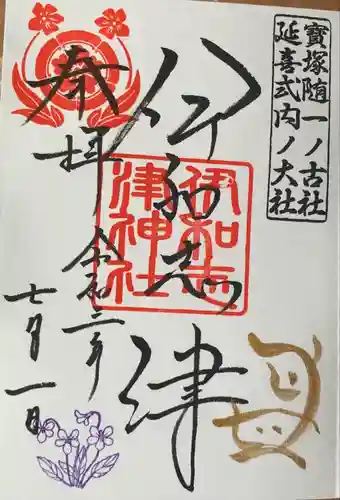 寶塚随一ノ古社
延喜式内ノ大社
伊和志津
伊和志
津神社
奉拝
令和二年
七月一日